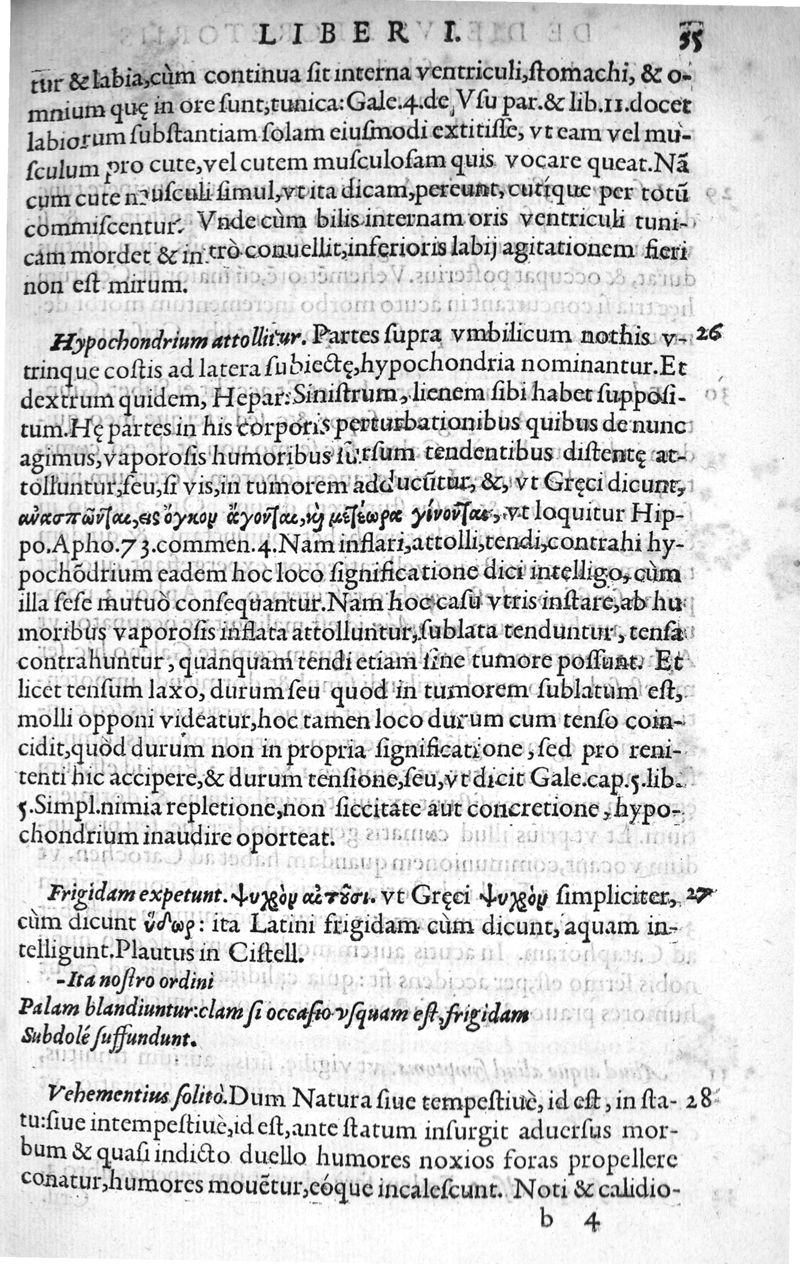 LIBER I. 35
tur & labia, cùm continua sit interna ventriculi, stomachi, & o-
mnium quę in ore sunt, tunica: Gale. 4. de Vsu par. & lib. 11. docet
labiorum substantiam solam eiusmodi extitisse, vt eam vel mu-
sculum pro cute, vel cutem musculosam quis vocare queat. Nã
cum cute musculi simul, vt ita dicam, pereunt, cutíque per totũ
commiscentur. Vnde cùm bilis internam oris ventriculi tuni-
cam mordet & intrò conuellit, inferioris labij agitationem fieri
non est mirum.
Hypochondrium attollitur. Partes supra vmbilicum nothis v- 26
trinque costis ad latera subiectę, hypochondria nominantur. Et
dextrum quidem, Hepar: Sinistrum, lienem sibi habet supposi-
tum. Hę partes in his corporis perturbationibus quibus de nunc
agimus, vaporosis humoribus sursum tendentibus distentę at-
tolluntur, seu, si vis, in tumorem adducũtur, &, vt Gręci dicunt,
ἀνασπῶνται, εἰς ὄγκον ἄγονται, καὶ μετέωρα γίνονται, vt loquitur Hip-
po. Apho. 73. commen. 4. Nam inflari, attolli, tendi, contrahi hy-
pochõdrium eadem hoc loco significatione dici intelligo, cùm
illa sese mutuò consequantur. Nam hoc casu vtris instare, ab hu
moribus vaporosis inflata attolluntur, sublata tenduntur, tensa
contrahuntur, quanquam tendi etiam sine tumore possunt. Et
licet tensum laxo, durum seu quod in tumorem sublatum est,
molli opponi videatur, hoc tamen loco durum cum tenso coin-
cidit, quòd durum non in propria significatione, sed pro reni-
tenti hic accipere, & durum tensione, seu, vt dicit Gale. cap. 5. lib.
5. Simpl. nimia repletione, non siccitate aut concretione, hypo-
chondrium inaudire oporteat.
Frigidam expetunt. ψυχρὸν αἰτοῦσι. vt Gręci ψυχρὸν simpliciter, 27
cùm dicunt ὕδωρ: ita Latini frigidam cùm dicunt, aquam in-
telligunt. Plautus in Cistell.
-Ita nostro ordini
Palam blandiuntur: clam si occasio vsquam est, frigidam
Subdolé suffundunt.
Vehementius solitò. Dum Natura siue tempestiuè, id est, in sta- 28
tu: siue intempestiuè, id est, ante statum insurgit aduersus mor-
bum & quasi indicto duello humores noxios foras propellere
conatur, humores mouẽtur, eóque incalescunt. Noti & calidio-
b 4